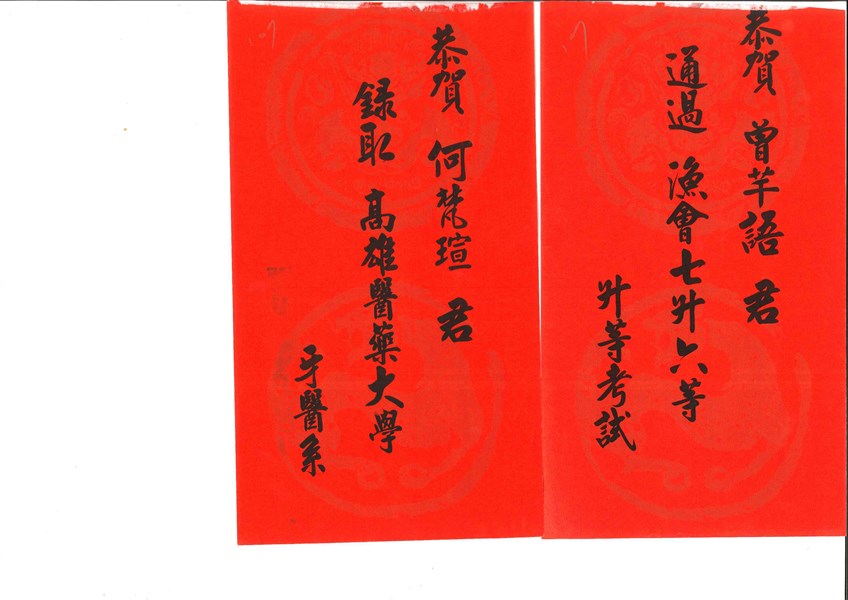 恭賀 曾芊語 君
通過 漁會七升六等
升等考試
恭賀 何梵瑄 君
錄取 高雄醫藥大學
牙醫系